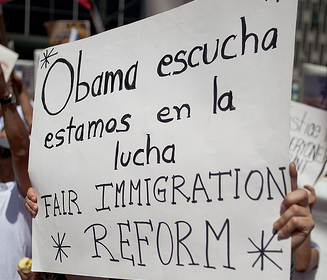 Obama escucha
estamos en la
lucha
FAIR IMMIGRATION
REFORM